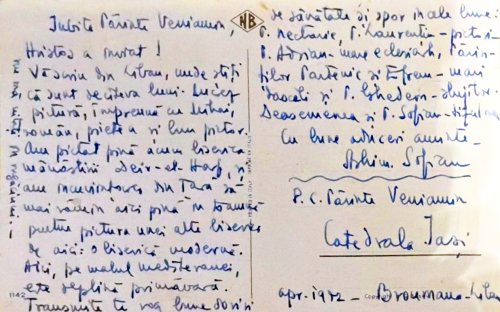 Iubite Părinte Veniamin,
Hristos a înviat!
Vă scriu din Liban, unde știți
că sunt de câteva luni. Lucrez
pictură, împreună cu Mihai,
român, pictor și bun pictor.
Am pictat până acum biserica
mănăstirii Deir-el-Harf, și
am încuviințarea din Țară să
mai rămân aici până în toamnă
pentru pictura unei alte biserici
de aici: o biserică modernă.
Aici, pe malul mediteranei,
este deplină primăvară.
Transmite te rog bune doriri
nu mă uita în rugăciuni. -
NB
1142
de sănătate și spor în ale bune:
P. Nectarie, P. Laurentiu - pictori -
P. Adrian - mare eclesiarh, Părin-
ților Partenie și Efrem - mari
dascăli și P. Ghedeon - slujitor.
Deasemenea și P. Sofian -
Cu bune aduceri aminte -
Arhim. Sofian
P. C. Părinte Veniamin
Catedrala Iași
apr. 1972 - Broumana - Liban